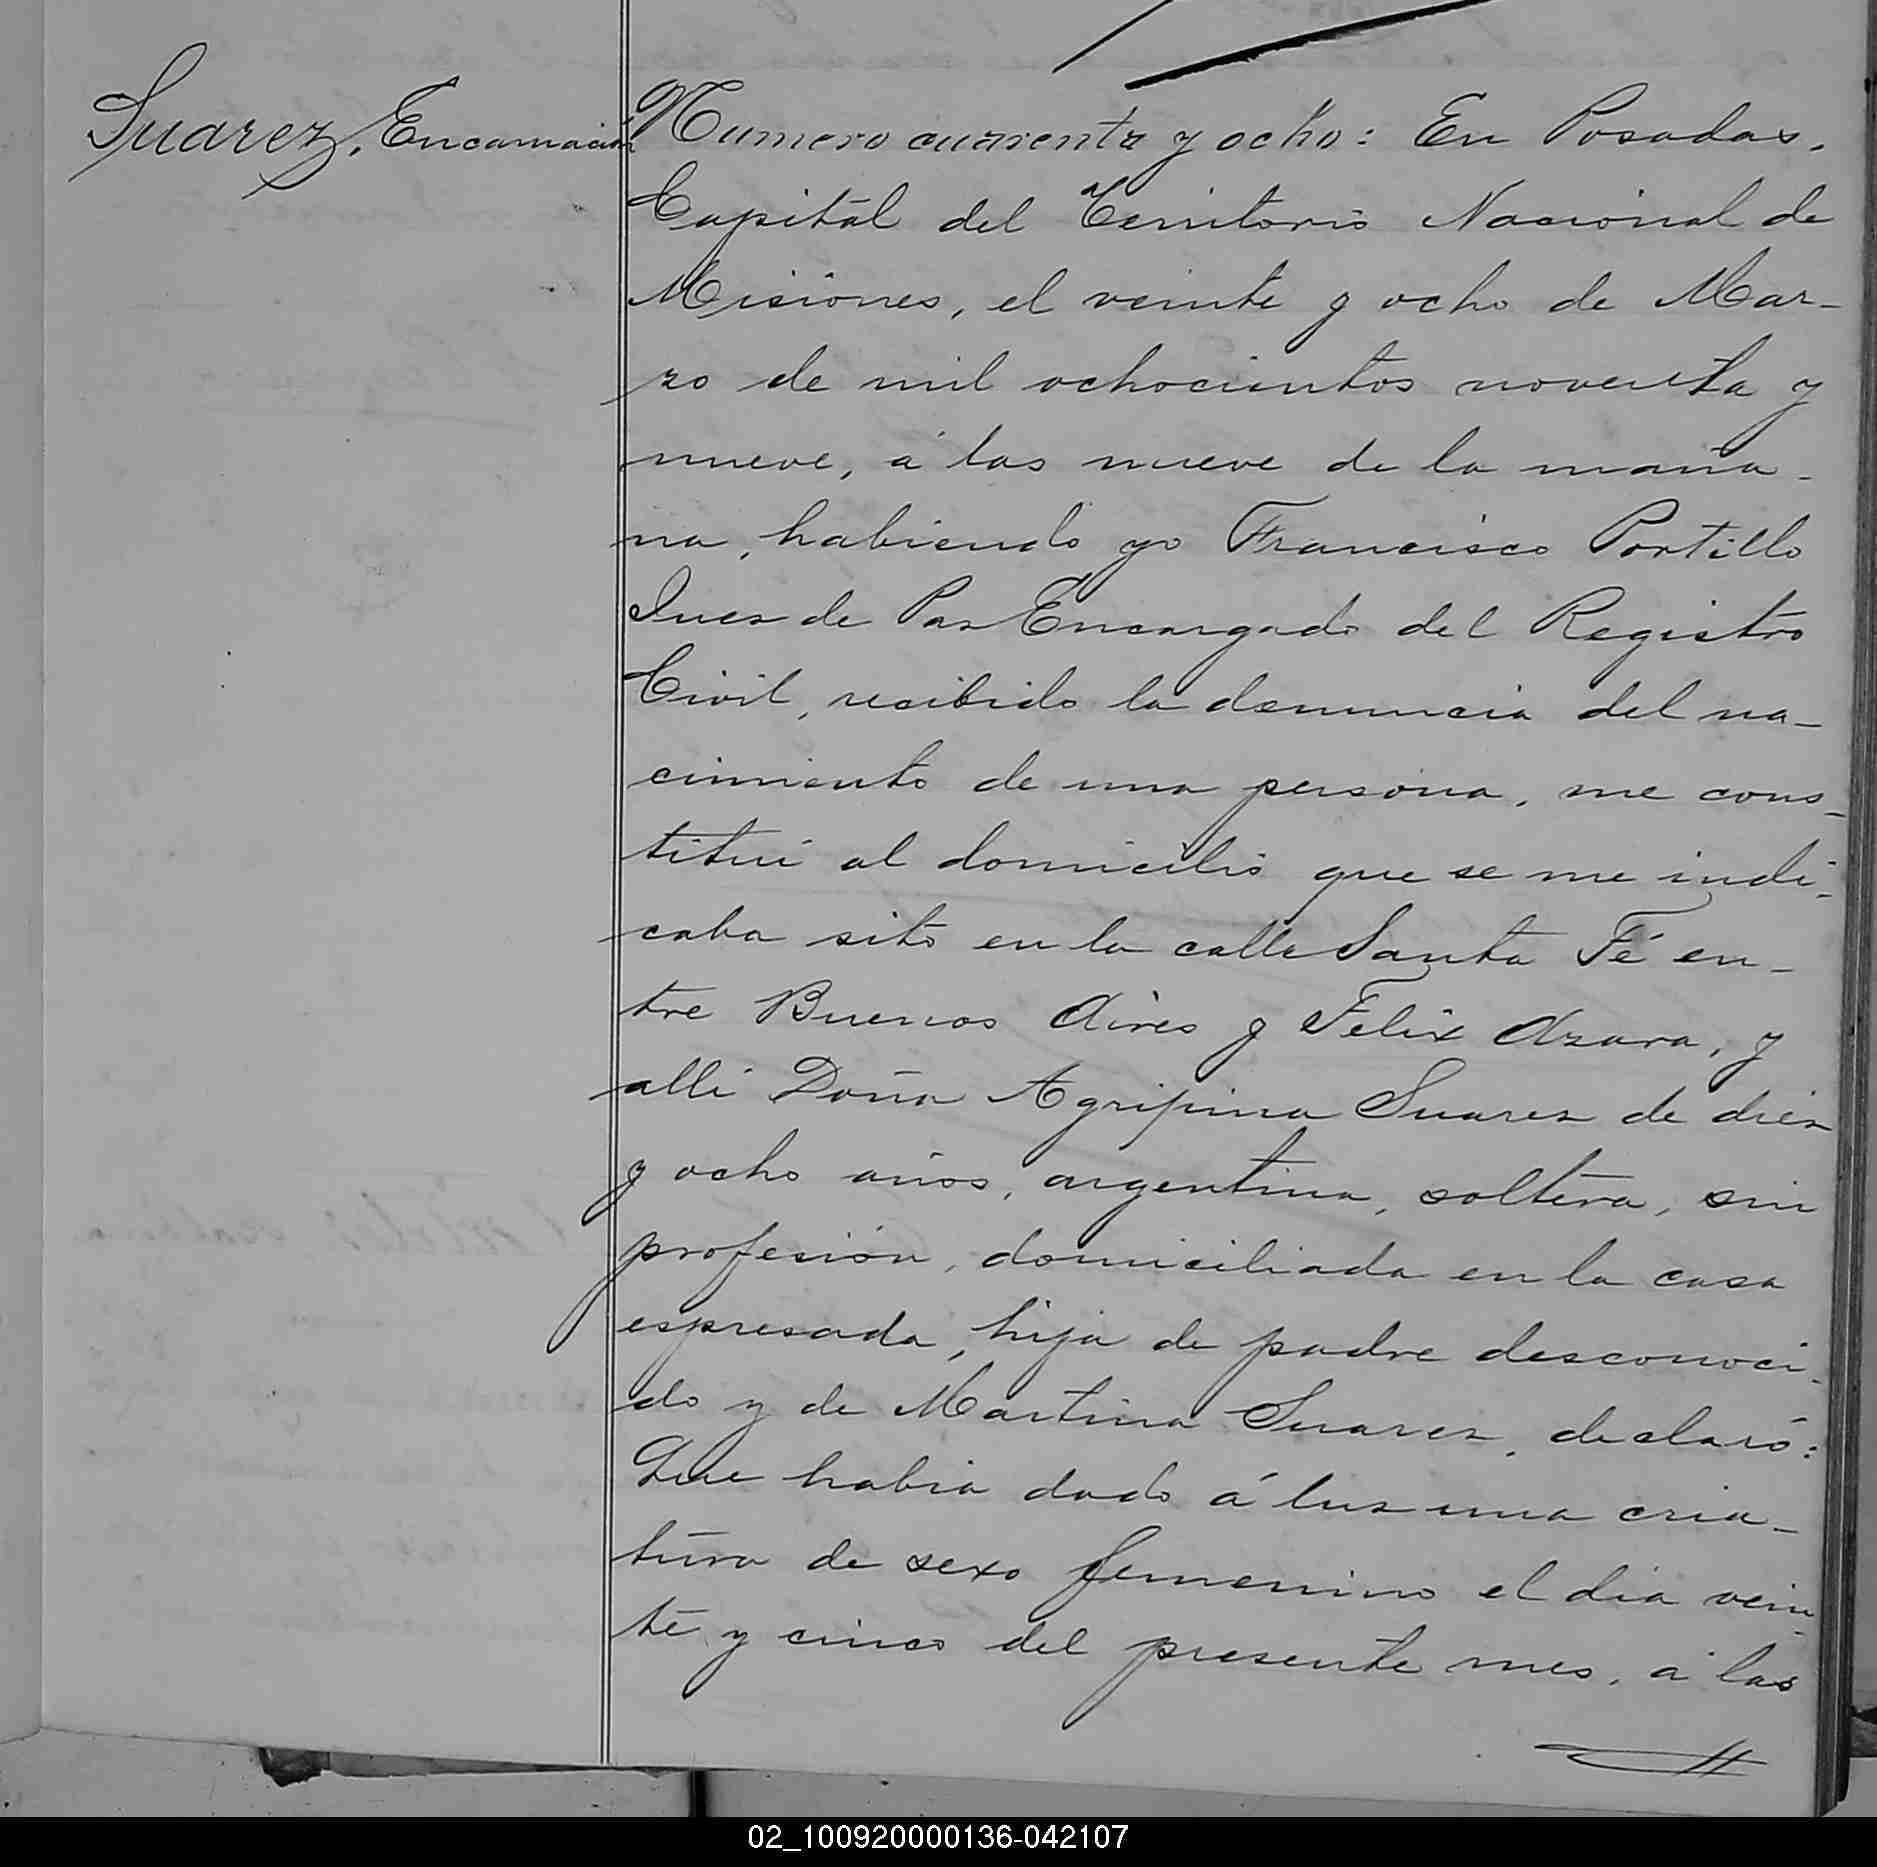 Suarez, Encarnación
Numero cuarenta y ocho: En Posadas,
Capitál del Territorio Nacional de
Misiones, el veinte y ocho de Mar-
zo de mil ochocientos noventa y
nueve, á las nueve de la maña-
na, habiendo yo Francisco Portillo
Juez de Paz Encargado del Registro
Civil, recibido la denuncia del na-
cimiento de una persona, me cons-
tituí al domicilio que se me indi-
caba sito en la calle Santa Fé en-
tre Buenos Aires y Felix Azara, y
alli Doña Agripina Suarez de diez
y ocho años, argentina, soltera, sin
profesión, domiciliada en la casa
espresada, hija de padre desconoci-
do y de Martina Suarez, declaró:
Que habia dado á luz una cria-
tura de sexo femenino el dia vein-
te y cinco del presente mes, á las
02_100920000136-042107